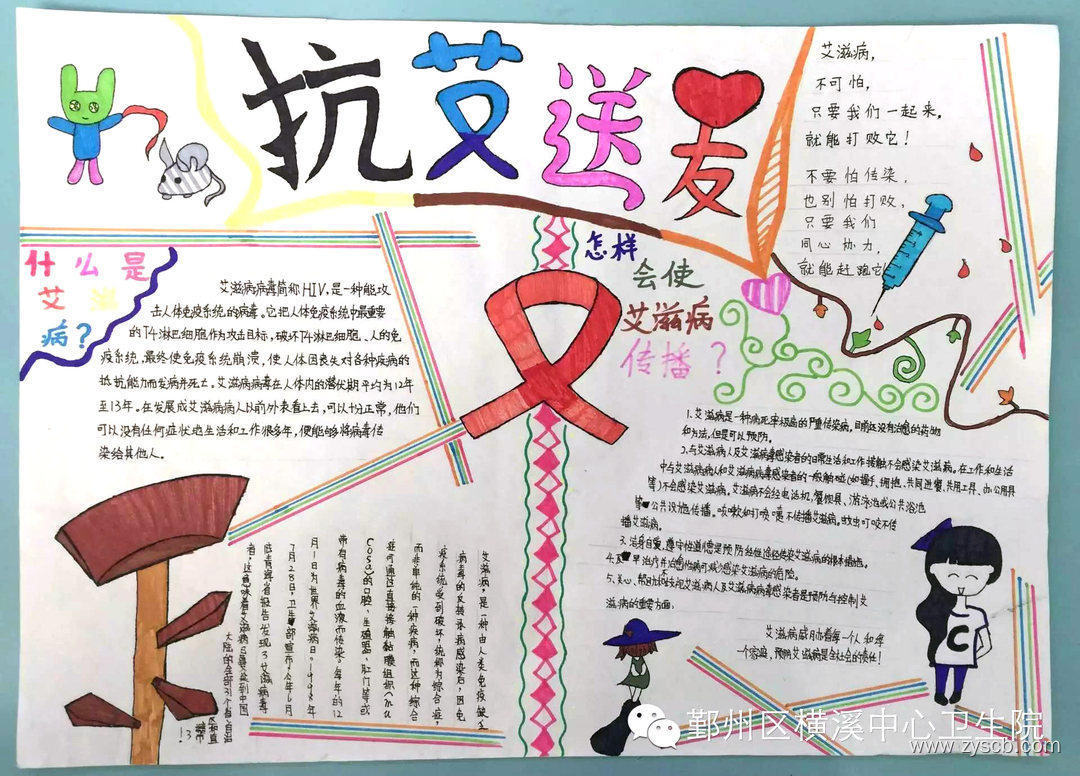 抗艾送友
艾滋病,
不可怕,
只要我们一起来,
就能打败它!
不要怕传染,
也别怕打败,
只要我们
同心协力,
就能赶跑它
什么是
艾滋
病?
艾滋病病毒简称HIV,是一种能攻
击人体免疫系统的病毒。它把人体免疫系统中最重要
的T4淋巴细胞作为攻击目标,破坏T4淋巴细胞、人的免
疫系统,最终使免疫系统崩溃,使人体因丧失对各种疾病的
抵抗能力而发病并死亡。艾滋病病毒在人体内的潜伏期平均为12年
至13年。在发展成艾滋病病人以前外表看上去,可以十分正常,他们
可以没有任何症状地生活和工作很多年,便能够将病毒传
染给其他人。
怎样
会使
艾滋病
传播?
1.艾滋病是一种病死率极高的严重传染病,目前还没有治愈的药物
和方法,但是可以预防。
2.与艾滋病人及艾滋病毒感染者的日常生活和工作接触不会感染艾滋病。在工作和生活
中与艾滋病病人和艾滋病病毒感染者的一般触碰(如握手、拥抱、共同进餐、共用工具、办公用具
等)不会感染艾滋病。艾滋病不会经电话机、餐饮具、游泳池或公共浴池
等公共设施传播。咳嗽和打喷嚏不传播艾滋病。蚊虫叮咬不传
播艾滋病。
3.洁身自爱、遵守性道德是预防经性途径传染艾滋病的根本措施。
4.及早治疗并治愈性病可减少感染艾滋病的危险。
5.关心、帮助和不歧视艾滋病人及艾滋病病毒感染者是预防与控制艾
滋病的重要方面。
艾滋病威胁着每一个人和每
一个家庭,预防艾滋病是全社会的责任!
艾滋病,是一种由人类免疫缺乏
病毒的反转录病毒感染后,因免
疫系统受到破坏,统称为综合症,
而非单纯的一种疾病,而这种综合
症可通过直接接触黏膜组织
的口腔、生殖器、肛门等或
带有病毒的血液而传染。每年的12
月1日为世界艾滋病日。1998年
7月28日,卫生部宣布,今年6月
底青海省报告发现3艾滋病毒
者,这意味着艾滋病已蔓延到中国
大陆的全部31个省、自治
C
鄞州区横溪中心卫生院
www.zyscb.com